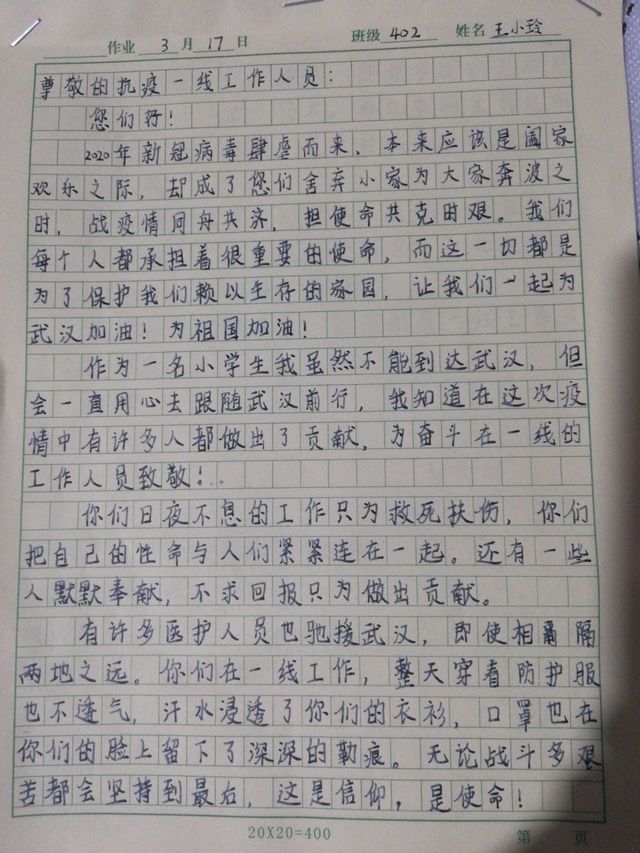 作业 3月17日 班级 402 姓名 王小玲
尊敬的抗疫一线工作人员：
您们好！
2020年新冠病毒肆虐而来，本来应该是阖家
欢乐之际，却成了您们舍弃小家为大家奔波之
时，战疫情同舟共济，担使命共克时艰。我们
每个人都承担着很重要的使命，而这一切都是
为了保护我们赖以生存的家园，让我们一起为
武汉加油！为祖国加油！
作为一名小学生我虽然不能到达武汉，但
会一直用心去跟随武汉前行，我知道在这次疫
情中有许多人都做出了贡献，为奋斗在一线的
工作人员致敬！..
你们日夜不息的工作只为救死扶伤，你们
把自己的性命与人们紧紧连在一起。还有一些
人默默奉献，不求回报只为做出贡献。
有许多医护人员也驰援武汉，即使相隔
两地之远。你们在一线工作，整天穿着防护服
也不透气，汗水浸透了你们的衣衫，口罩也在
你们的脸上留下了深深的勒痕。无论战斗多艰
苦都会坚持到最后，这是信仰，是使命！
20X20=400 第 页